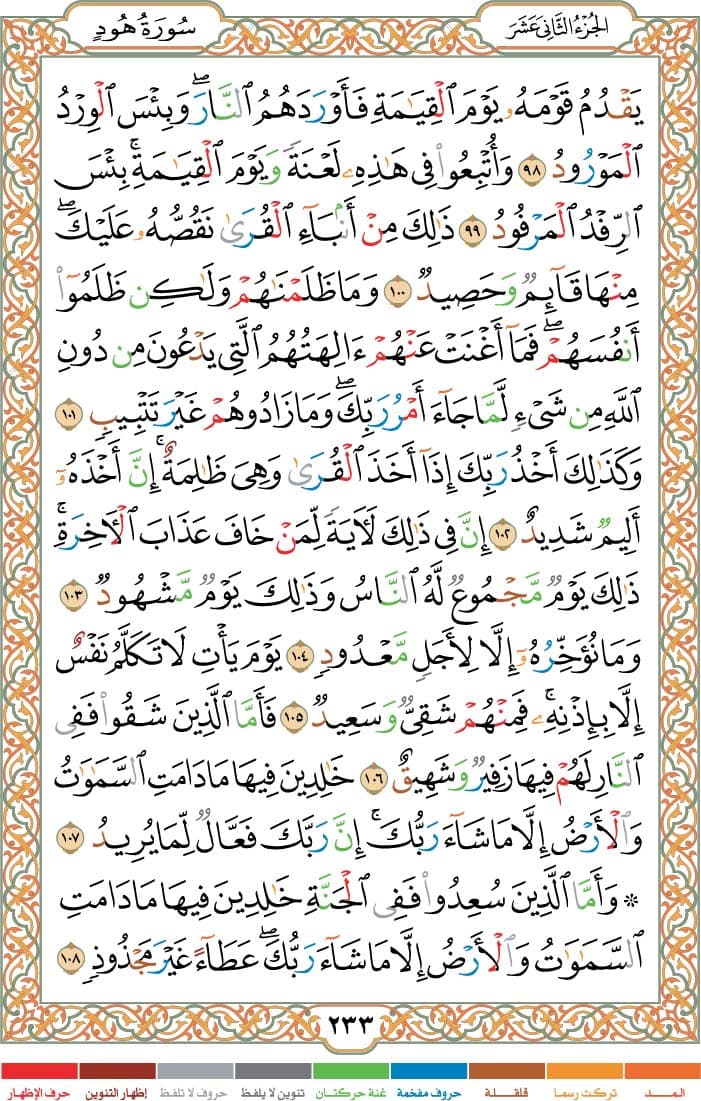 الجُزْءُ الثَّانِيَ عَشَرَ
سُورَةُ هُودٍ
يَقْدُمُ قَوْمَهُۥ يَوْمَ ٱلْقِيَـٰمَةِ فَأَوْرَدَهُمُ ٱلنَّارَۖ وَبِئْسَ ٱلْوِرْدُ
ٱلْمَوْرُودُ ٩٨ وَأُتْبِعُوا۟ فِى هَـٰذِهِۦ لَعْنَةً وَيَوْمَ ٱلْقِيَـٰمَةِۚ بِئْسَ
ٱلرِّفْدُ ٱلْمَرْفُودُ ٩٩ ذَٰلِكَ مِنْ أَنۢبَآءِ ٱلْقُرَىٰ نَقُصُّهُۥ عَلَيْكَۖ
مِنْهَا قَآئِمٌ وَحَصِيدٌ ١٠٠ وَمَا ظَلَمْنَـٰهُمْ وَلَـٰكِن ظَلَمُوٓا۟
أَنفُسَهُمْۖ فَمَآ أَغْنَتْ عَنْهُمْ ءَالِهَتُهُمُ ٱلَّتِى يَدْعُونَ مِن دُونِ
ٱللَّهِ مِن شَىْءٍ لَّمَّا جَآءَ أَمْرُ رَبِّكَۖ وَمَا زَادُوهُمْ غَيْرَ تَتْبِيبٍ ١٠١
وَكَذَٰلِكَ أَخْذُ رَبِّكَ إِذَآ أَخَذَ ٱلْقُرَىٰ وَهِىَ ظَـٰلِمَةٌۚ إِنَّ أَخْذَهُۥٓ
أَلِيمٌ شَدِيدٌ ١٠٢ إِنَّ فِى ذَٰلِكَ لَـَٔايَةً لِّمَنْ خَافَ عَذَابَ ٱلْـَٔاخِرَةِۚ
ذَٰلِكَ يَوْمٌ مَّجْمُوعٌ لَّهُ ٱلنَّاسُ وَذَٰلِكَ يَوْمٌ مَّشْهُودٌ ١٠٣
وَمَا نُؤَخِّرُهُۥٓ إِلَّا لِأَجَلٍ مَّعْدُودٍ ١٠٤ يَوْمَ يَأْتِ لَا تَكَلَّمُ نَفْسٌ
إِلَّا بِإِذْنِهِۦۚ فَمِنْهُمْ شَقِىٌّ وَسَعِيدٌ ١٠٥ فَأَمَّا ٱلَّذِينَ شَقُوا۟ فَفِى
ٱلنَّارِ لَهُمْ فِيهَا زَفِيرٌ وَشَهِيقٌ ١٠٦ خَـٰلِدِينَ فِيهَا مَا دَامَتِ ٱلسَّمَـٰوَٰتُ
وَٱلْأَرْضُ إِلَّا مَا شَآءَ رَبُّكَۚ إِنَّ رَبَّكَ فَعَّالٌ لِّمَا يُرِيدُ ١٠٧
۞ وَأَمَّا ٱلَّذِينَ سُعِدُوا۟ فَفِى ٱلْجَنَّةِ خَـٰلِدِينَ فِيهَا مَا دَامَتِ
ٱلسَّمَـٰوَٰتُ وَٱلْأَرْضُ إِلَّا مَا شَآءَ رَبُّكَۖ عَطَآءً غَيْرَ مَجْذُوذٍ ١٠٨
٢٣٣
المـــد تركت رسما قلقـلة حروف مفخمة غنة حركتـان تنوين لا يلفظ حروف لا تلفظ إظهار التنوين حرف الإظهار